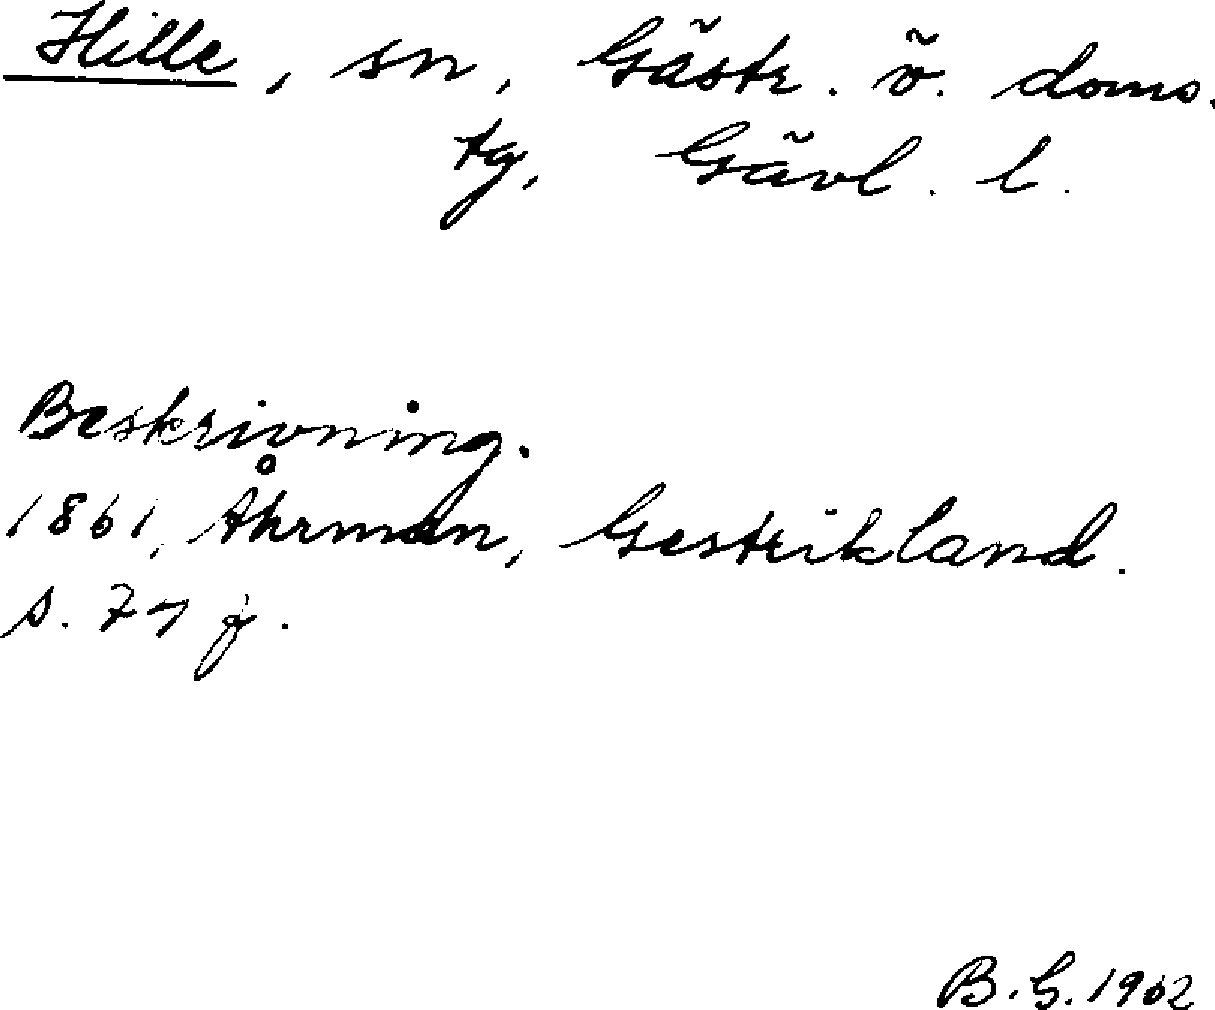 Hille, sn, Gästr. ö. doms.
tg, Gävl. l.
Beskrivning.
1861, Åhrman, Gestrikland.
s. 77 f.
B. G. 1962